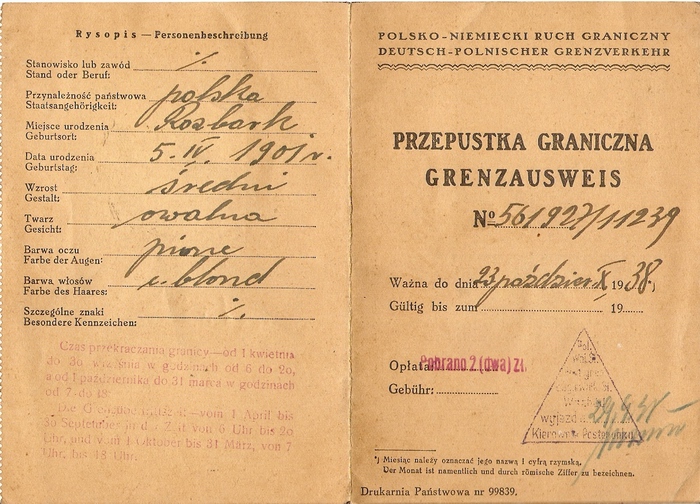 Rysopis — Personenbeschreibung
Stanowisko lub zawód
Stand oder Beruf: ·/.
Przynależność państwowa
Staatsangehörigkeit: polska
Miejsce urodzenia
Geburtsort: Rozbark
Data urodzenia
Geburtstag: 5. IV. 1901 r.
Wzrost
Gestalt: średni
Twarz
Gesicht: owalna
Barwa oczu
Farbe der Augen: piwne
Barwa włosów
Farbe des Haares: c. blond
Szczególne znaki
Besondere Kennzeichen: ·/.
Czas przekraczania granicy—od 1 kwietnia
do 30 września w godzinach od 6 do 20,
a od 1 października do 31 marca w godzinach
od 7 do 18
Die Grenze vom 1 April bis
30 September von 6 Uhr bis 20
Uhr, und vom 1 Oktober bis 31 März, von 7
Uhr, bis 18 Uhr.
POLSKO-NIEMIECKI RUCH GRANICZNY
DEUTSCH-POLNISCHER GRENZVERKEHR
PRZEPUSTKA GRANICZNA
GRENZAUSWEIS
№ 561927/11239
Ważna do dnia 23 paździer. X 1938 *)
Gültig bis zum 19
Opłata: Pobrano 2 (dwa) zł.
Gebühr:
wyjazd
Kierow
*) Miesiąc należy oznaczać jego nazwą i cyfrą rzymską.
Der Monat ist namentlich und durch römische Ziffer zu bezeichnen.
Drukarnia Państwowa nr 99839.